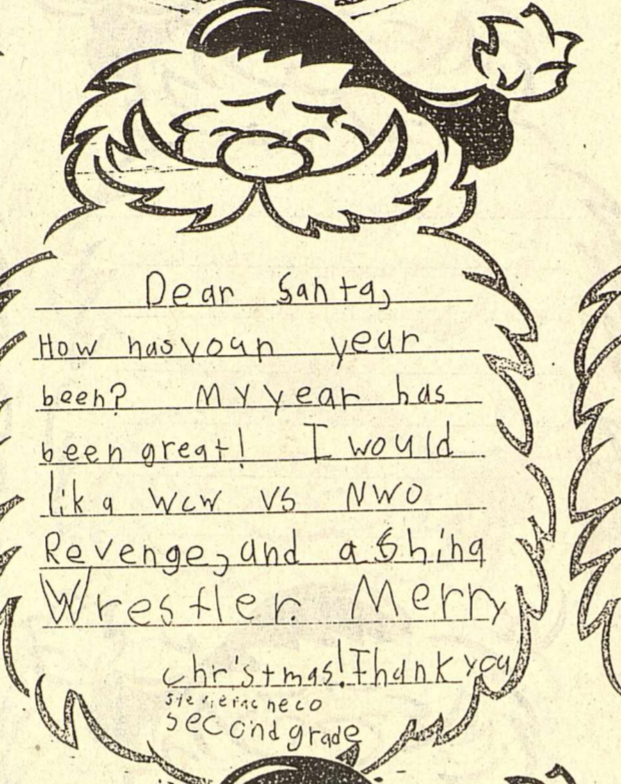 Dear Santa,
How has your year
been? My year has
been great! I would
lik a WCW VS NWO
Revenge, and a Shing
Wrestler. Merry
Christmas! Thank you
second grade